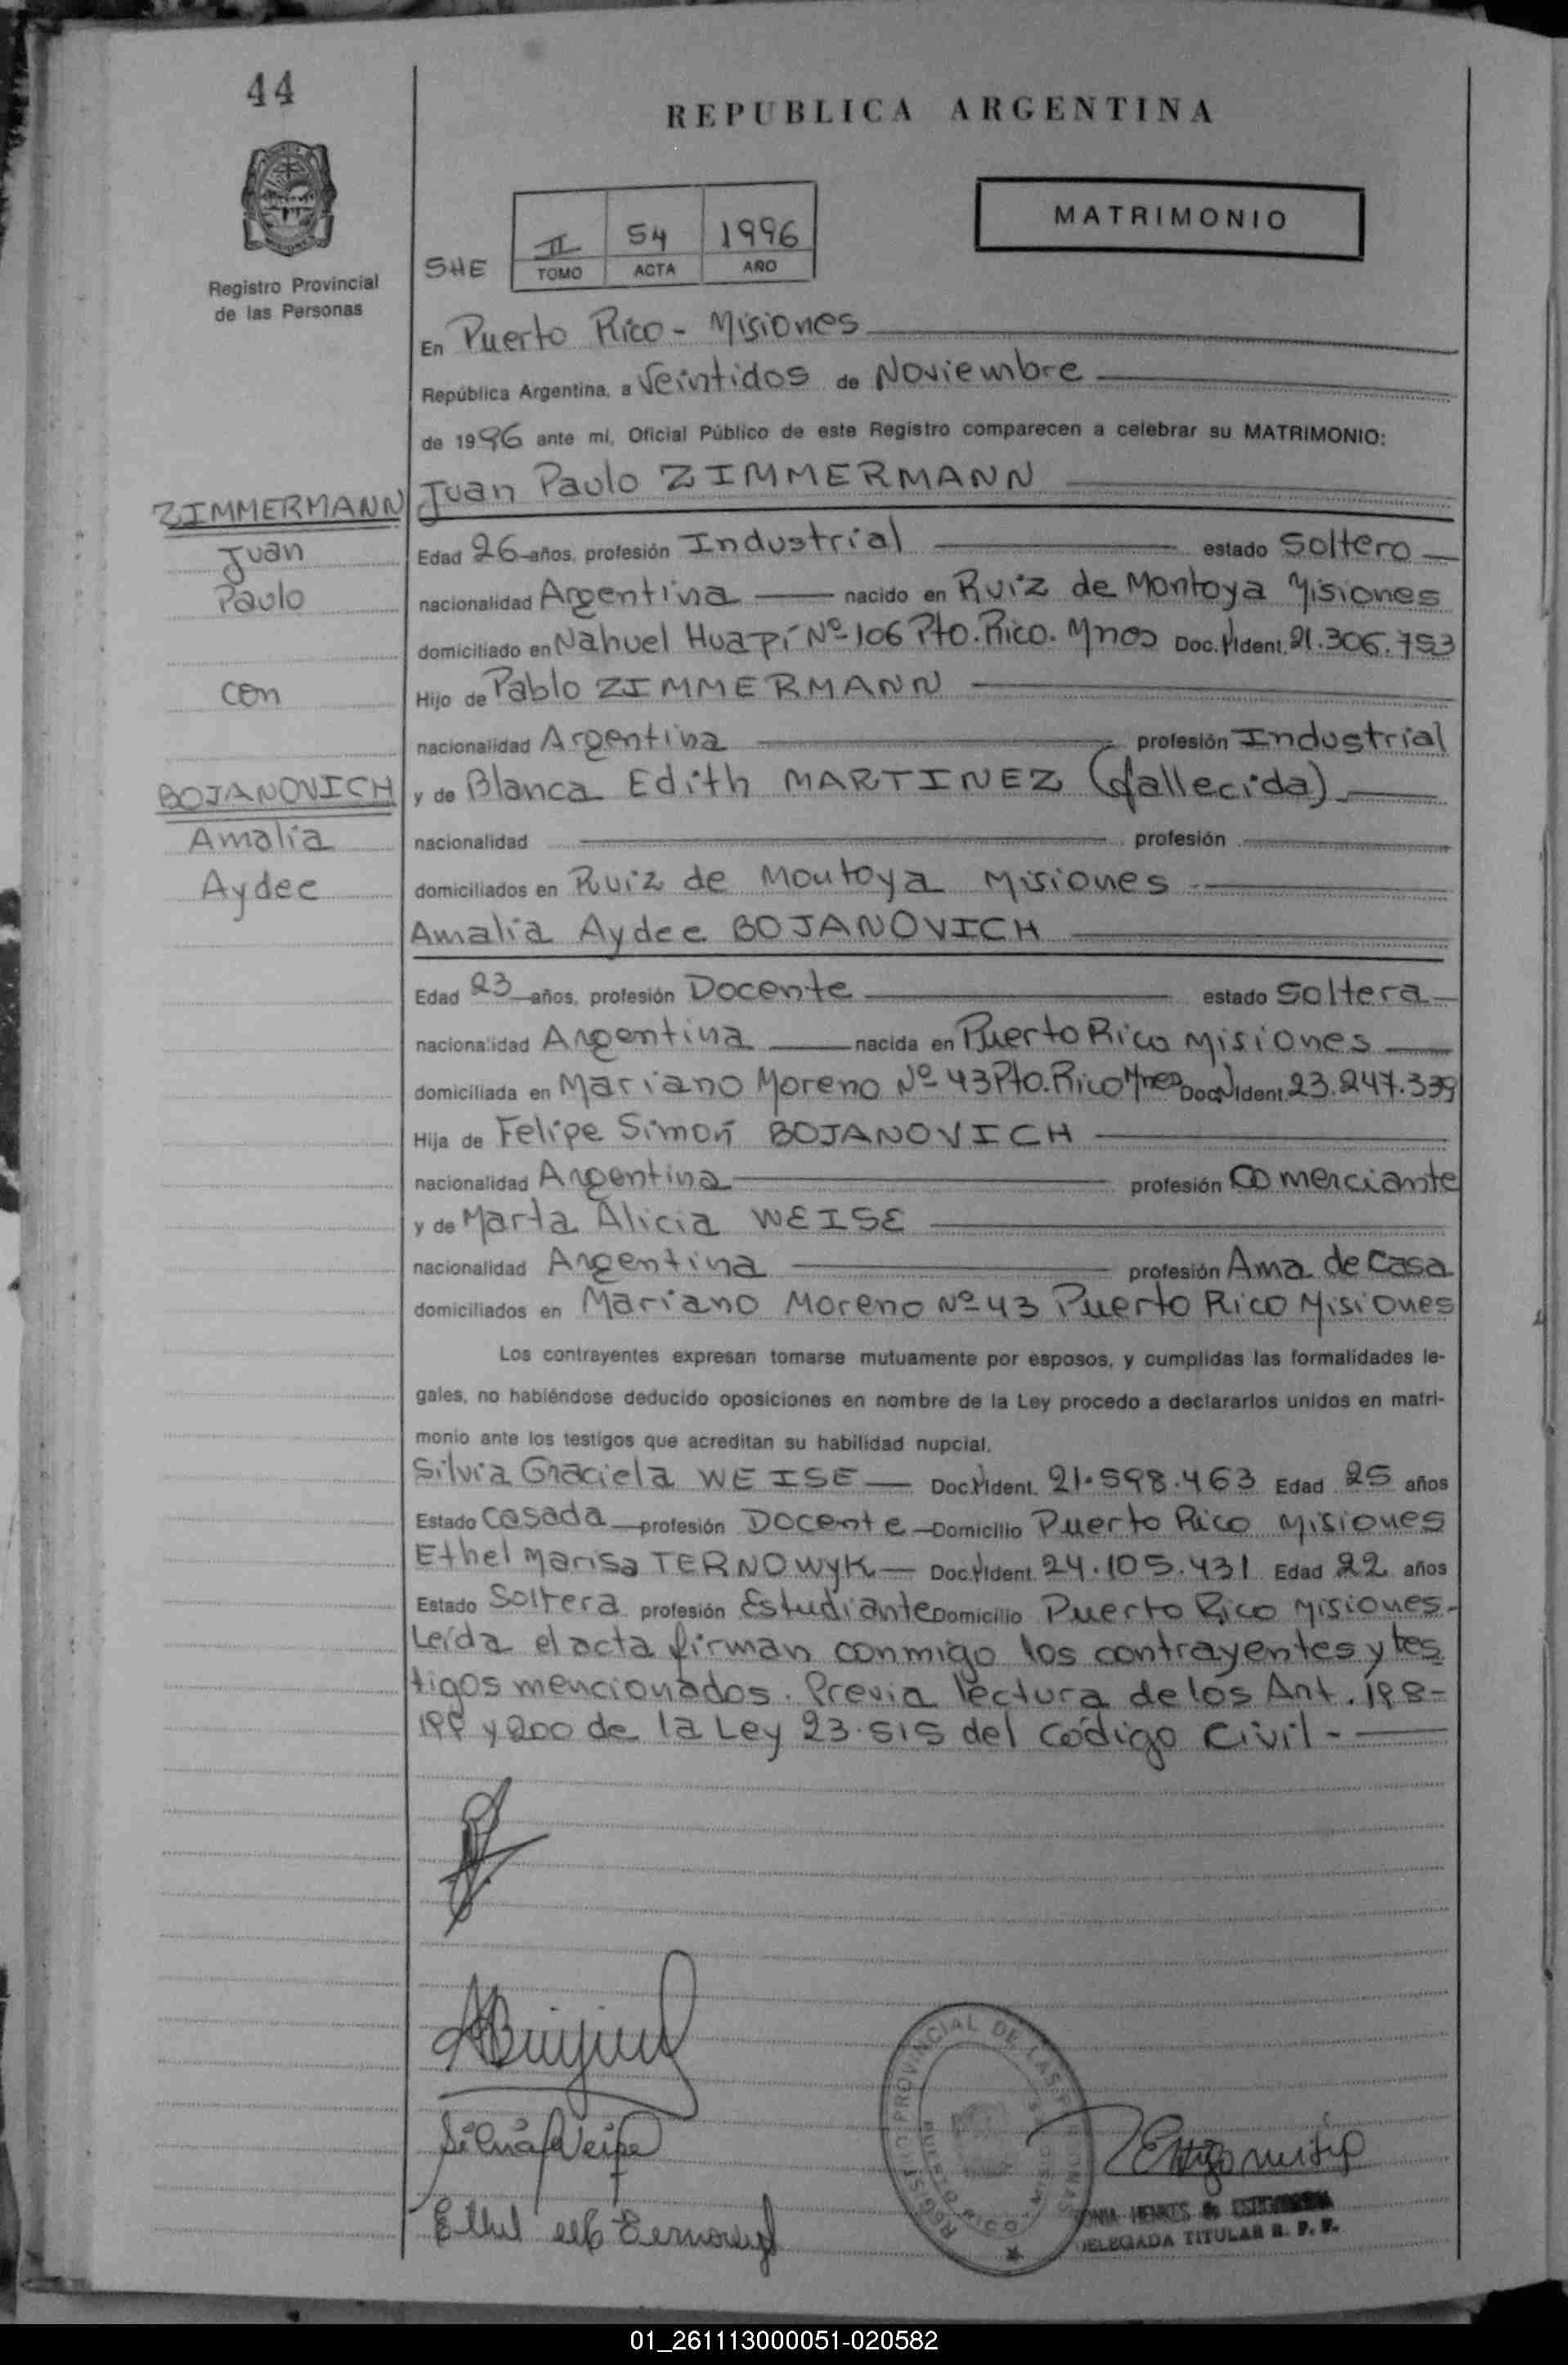 44
REPUBLICA ARGENTINA
MATRIMONIO
Registro Provincial
de las Personas
SHE
II 54 1996
TOMO ACTA AÑO
En Puerto Rico - Misiones
República Argentina, a Veintidos de Noviembre
de 1996 ante mí, Oficial Público de este Registro comparecen a celebrar su MATRIMONIO:
ZIMMERMANN
Juan
Paulo
con
BOJANOVICH
Amalia
Aydee
Juan Paulo ZIMMERMANN
Edad 26 años, profesión Industrial estado Soltero
nacionalidad Argentina nacido en Ruiz de Montoya Misiones
domiciliado en Nahuel Huapí Nº 106 Pto. Rico. Mnes Doc. N Ident. 21.306.753
Hijo de Pablo ZIMMERMANN
nacionalidad Argentina profesión Industrial
y de Blanca Edith MARTINEZ (fallecida)
nacionalidad profesión
domiciliados en Ruiz de Montoya Misiones
Amalia Aydee BOJANOVICH
Edad 23 años, profesión Docente estado Soltera
nacionalidad Argentina nacida en Puerto Rico Misiones
domiciliada en Mariano Moreno Nº 43 Pto. Rico Mnes Doc. N Ident. 23.247.339
Hija de Felipe Simón BOJANOVICH
nacionalidad Argentina profesión Comerciante
y de Marta Alicia WEISE
nacionalidad Argentina profesión Ama de Casa
domiciliados en Mariano Moreno Nº 43 Puerto Rico Misiones
Los contrayentes expresan tomarse mutuamente por esposos, y cumplidas las formalidades le-
gales, no habiéndose deducido oposiciones en nombre de la Ley procedo a declararlos unidos en matri-
monio ante los testigos que acreditan su habilidad nupcial.
Silvia Graciela WEISE Doc. N Ident. 21.598.463 Edad 25 años
Estado Casada profesión Docente Domicilio Puerto Rico Misiones
Ethel Marisa TERNOWYK Doc. N Ident. 24.105.431 Edad 22 años
Estado Soltera profesión Estudiante Domicilio Puerto Rico Misiones.
Leída el acta firman conmigo los contrayentes y tes
tigos mencionados. Previa lectura de los Art. 198-
199 y 200 de la Ley 23.515 del Código Civil.-
REGISTRO PROVINCIAL DE LAS PERSONAS
PUERTO RICO
DELEGADA TITULAR R. P. P.
01_261113000051-020582